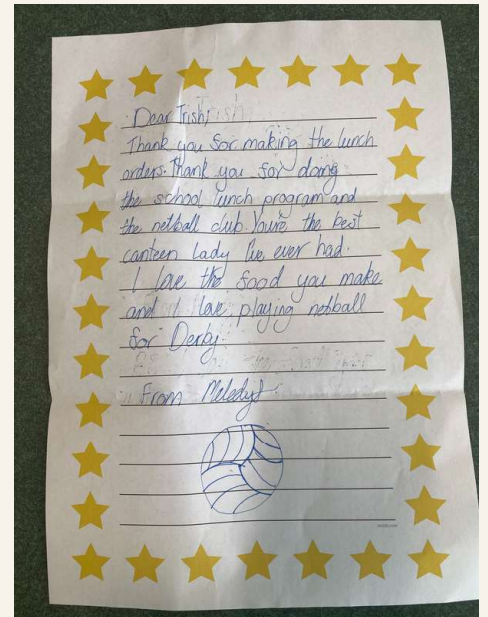 Dear Trish,
Thank you for making the lunch
orders. Thank you for doing
the school lunch program and
the netball club. You're the best
canteen lady I've ever had.
I love the food you make
and I love playing netball
for Derby.
From Meledy